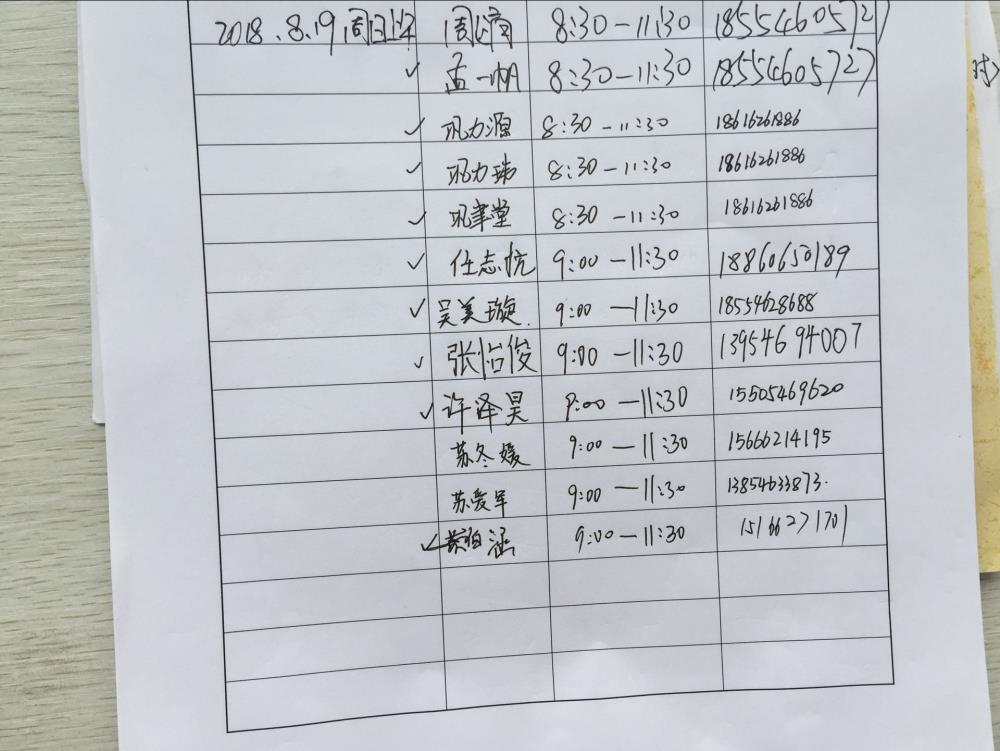 2018.8.19周日上午 周 8:30-11:30 18554605727
✓ 孟一帆 8:30-11:30 18554605727
✓ 巩力源 8:30-11:30 18616261886
✓ 巩力玮 8:30-11:30 18616261886
✓ 巩聿堂 8:30-11:30 18616261886
✓ 任志忼 9:00-11:30 18860650189
✓ 吴美璇. 9:00-11:30 18554628688
✓ 张怡俊 9:00-11:30 13954694007
✓ 许泽昊 9:00-11:30 15505469620
苏冬媛 9:00-11:30 15666214195
苏爱军 9:00-11:30 13854633873.
✓ 涵 9:00-11:30 15166271701
时